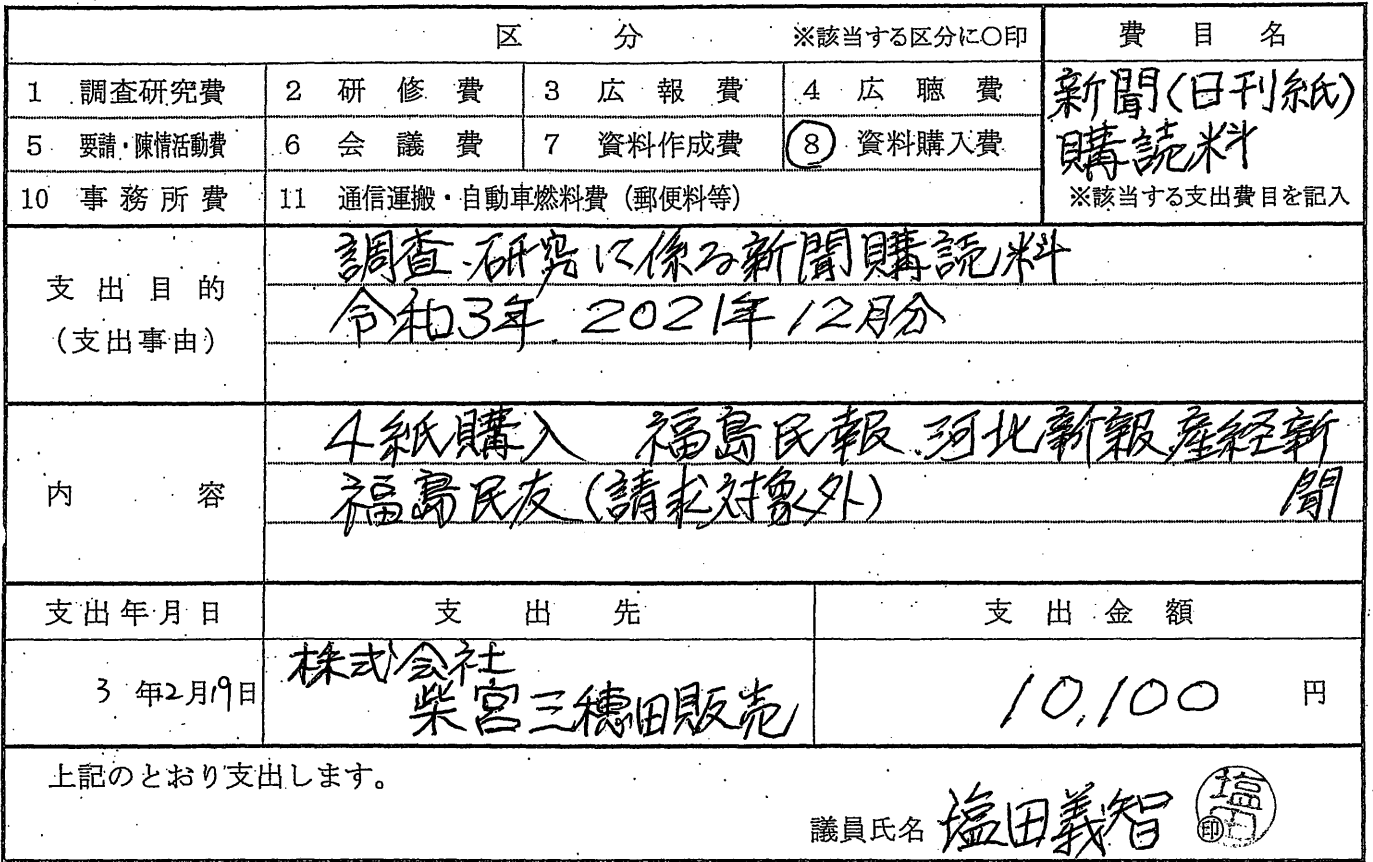 区 分 ※該当する区分に〇印
費 目 名
1 調査研究費 2 研修費 3 広報費 4 広聴費
新聞(日刊紙)
5 要請・陳情活動費 6 会議費 7 資料作成費 8 資料購入費
購読料
10 事務所費 11 通信運搬・自動車燃料費(郵便料等)
※該当する支出費目を記入
支出目的
(支出事由)
調査、研究に係る新聞購読料
令和3年 2021年12月分
内 容
4紙購入 福島民報 河北新報 産経新
聞
福島民友(請求対象外)
支出年月日 支出先 支出金額
3年2月19日
株式会社
柴宮三穂田販売
10,100 円
上記のとおり支出します。
議員氏名 塩田義智 印
塩田